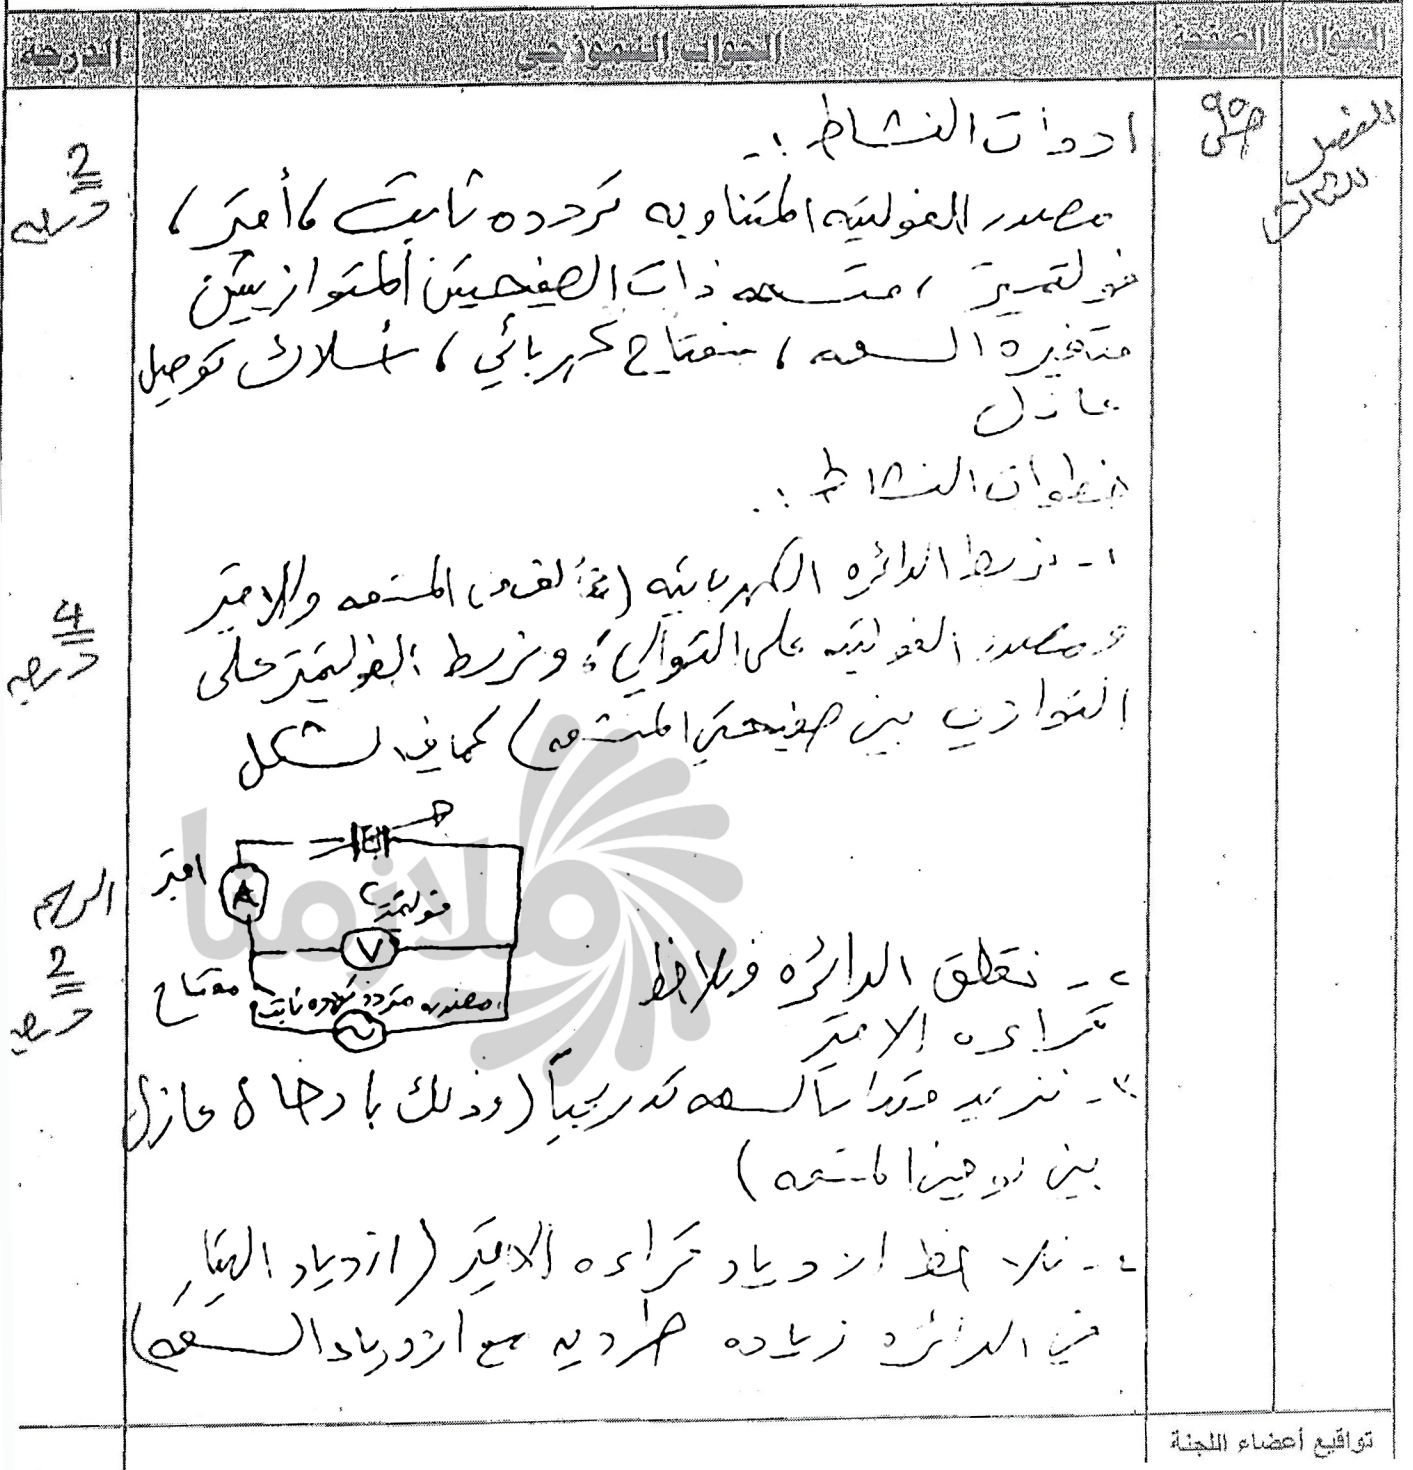 السؤال الصفحة الجواب النموذجي الدرجة
الفصل الثالث
ص٩٥
ادوات النشاط :-
2 درجه
مصدر الفولتيه المتناوبه تردده ثابت ، أميتر ،
فولتميتر ، متسعه ذات الصفيحتين المتوازيتين
متغيرة السعه ، مفتاح كهربائي ، أسلاك توصيل
عازل
خطوات النشاط :-
١- نربط الدائره الكهربائيه (تتألف من المتسعه والاميتر
4 درجه
ومصدر الفولتيه على التوالي ، ونربط الفولتميتر على
التوازي بين صفيحتي المتسعه) كما في الشكل
اميتر
A
فولتميتر
V
مفتاح
مصدر متردد تردده ثابت
الرسم
2 درجه
٢- نغلق الدائره ونلاحظ
قراءه الاميتر
٣- نزيد مقدار السعه تدريجياً (وذلك بادخال عازل
بين لوحين المتسعه)
٤- نلاحظ ازدياد قراءه الاميتر (ازدياد التيار
في الدائره زياده طرديه مع ازدياد السعه)
ملازمنا
تواقيع أعضاء اللجنة